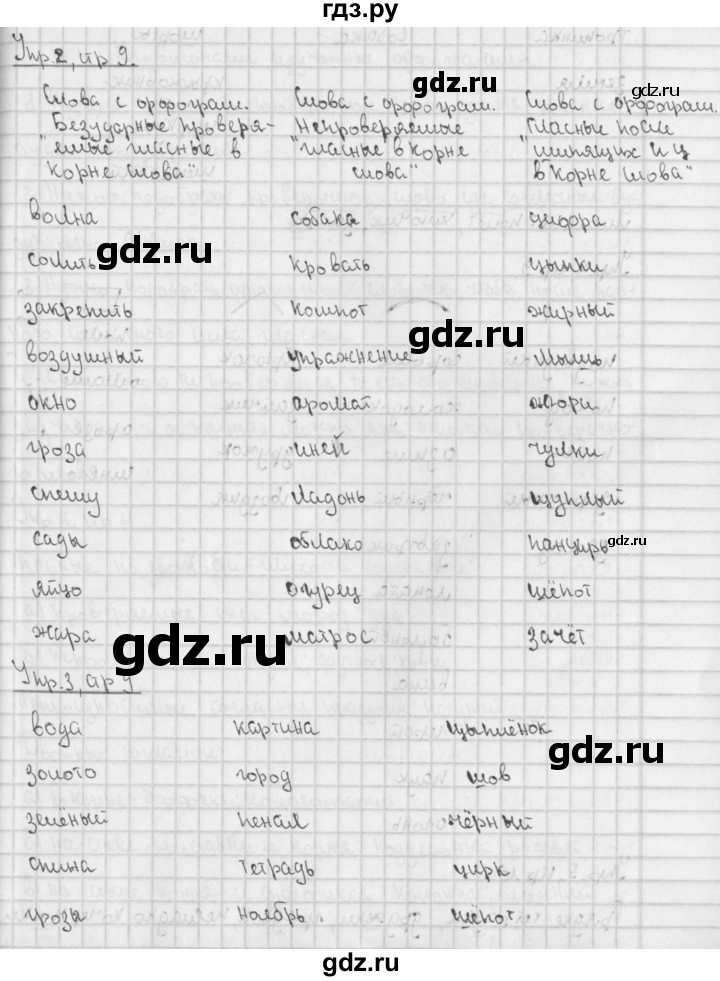 гдз.ру
Упр.2, стр 9.
Слова с орфограм. Слова с орфограм. Слова с орфограм.
Безударные проверя- Непроверяемые Гласные после
"емые гласные в "гласные в корне "шипящих и ц
корне слова" слова" в корне слова"
волна собака цифра
солить кровать цыпки
закрепить компот жирный
воздушный упражнение мышь
окно аромат жюри
гроза иней чулки
спешу ладонь щуплый
сады облако панцирь
яйцо огурец шёпот
жара матрос зачёт
Упр.3, стр 9
вода картина цыплёнок
золото город шов
зелёный пенал чёрный
спина тетрадь цирк
грозы ноябрь. шёпот
gdz.ru
gdz.ru
gdz.ru
gdz.ru
gdz.ru
gdz.ru
gdz.ru
gdz.ru
gdz.ru